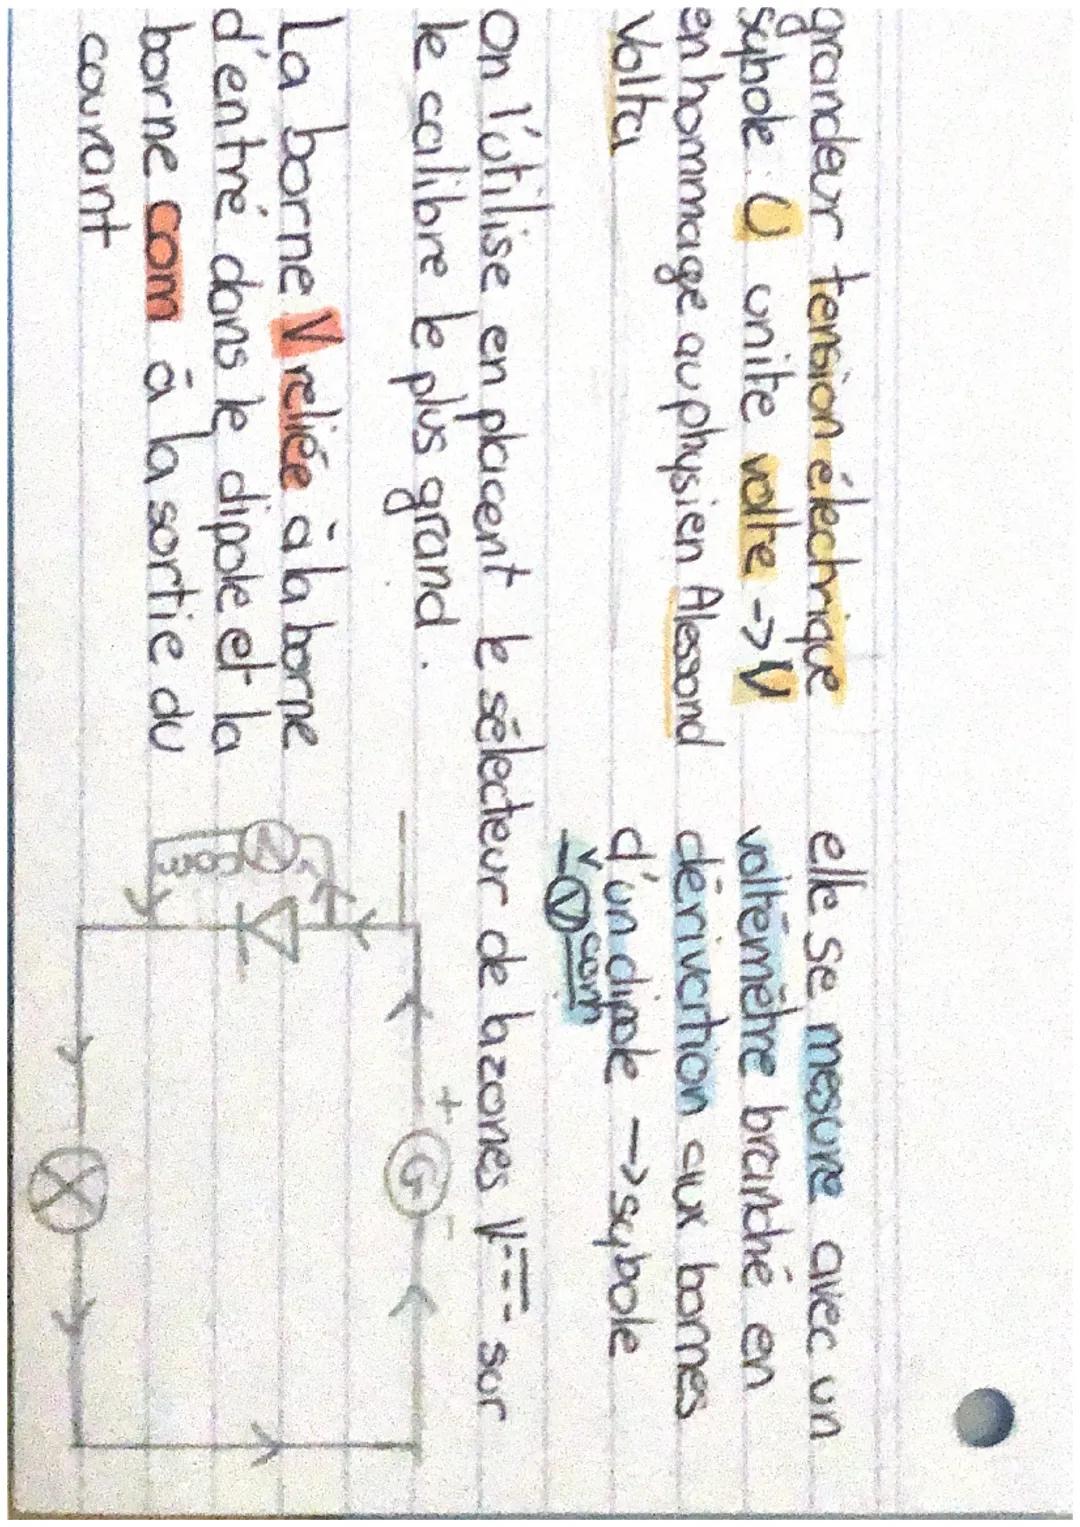 grandeur tension électrique
sybole : U unite volte -> V
en hommage au physien Alessand
Volta
elle se mesure avec un
voltèmètre branché en
dérivertion aux bornes
d'un dipole -> sybole
V com
V
On l'utilise en placent le sélecteur de la zones V sur
le calibre le plus grand.
La borne V reliée à la borne
d'entré dans le dipole et la
borne com à la sortie du
courant
+ G -
V
V
com